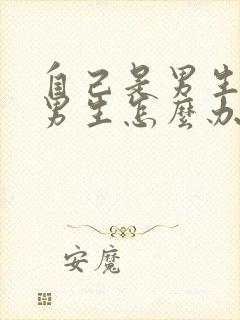 自己是男生
男生怎麼办
安魔